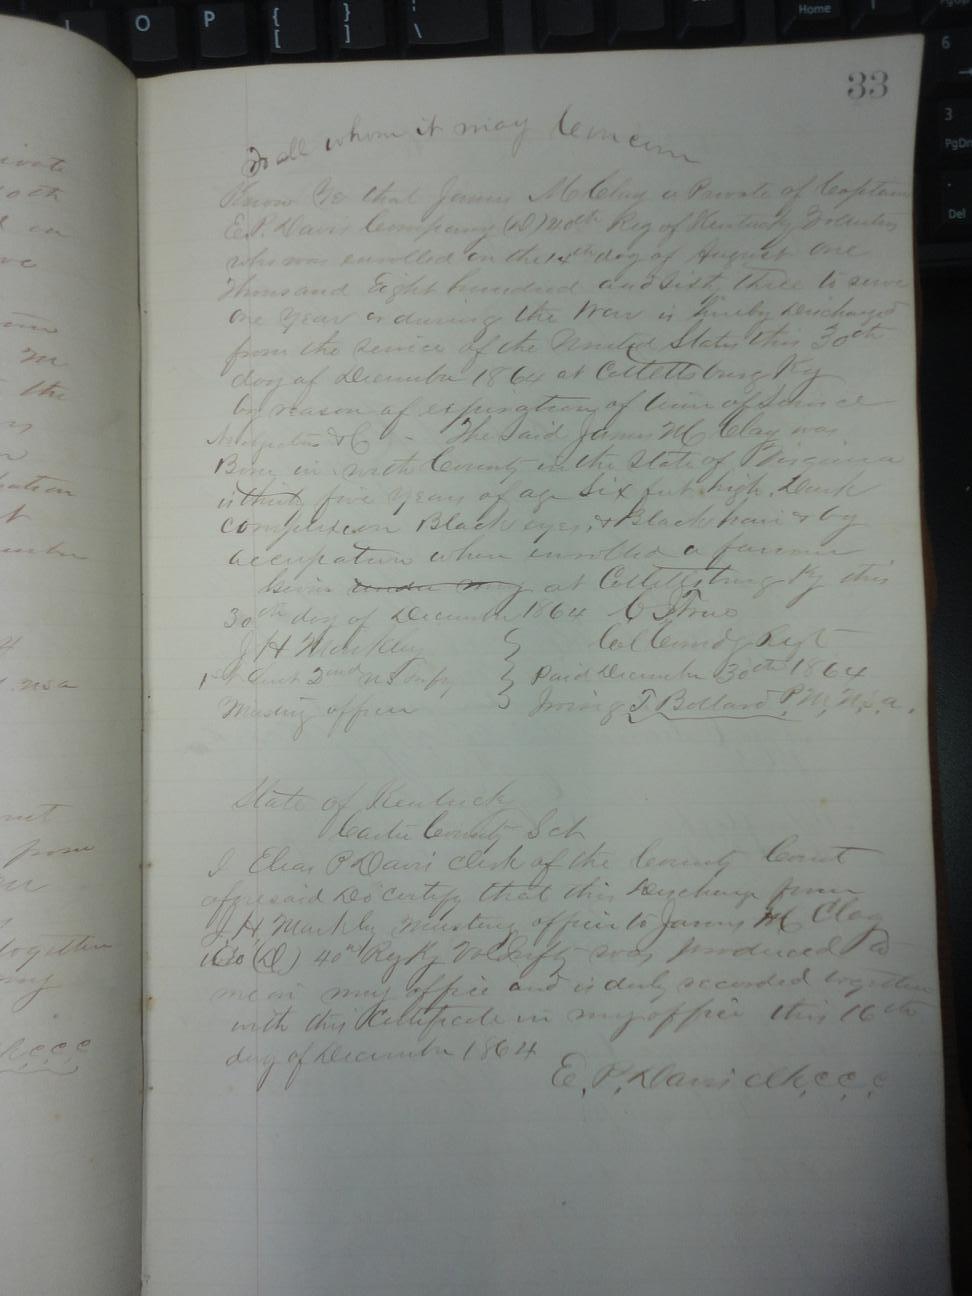 33
To all whom it may Concern
Know Ye that James M Clay a Private of Captain
E.P. Davis Company (D) 40th Reg of Kentucky Volunteers
who was enrolled on the 14th day of August one
Thousand Eight hundred and Sixty three to serve
one Year or during the War is hereby Discharged
from the service of the United States this 30th
day of December 1864 at Catlettsburg Ky
by reason of expiration of time of Service
The said James M Clay was
Born in County in the State of Virginia
is thirty five Years of age Six feet high, Dark
complexion Black eyes, & Black hair & by
occupation when enrolled a farmer
Given under my at Catlettsburg Ky this
30th day of December 1864 C J True
J H Markley } Col Comdg Regt
1st Lieut 2nd } Paid December 30th 1864
Mustering officer } Irving T. Bollard P.M. U.S.a.
State of Kentucky
Carter County Sct
I Elias P Davis clerk of the County Court
aforesaid Do certify that this Discharge from
J. H. Markley Mustering officer to James M Clay
Co (D) 40th Reg Ky Vol Infty was produced to
me in my office and is duly recorded together
with this Certificate in my office this 16th
day of December 1864
E. P. Davis clk, c c, c
ivate
the
m
mber
U.S.a
from
together
my
c c c
O
P
{
[
}
]
\
Home
6
3
PgDn
.
Del